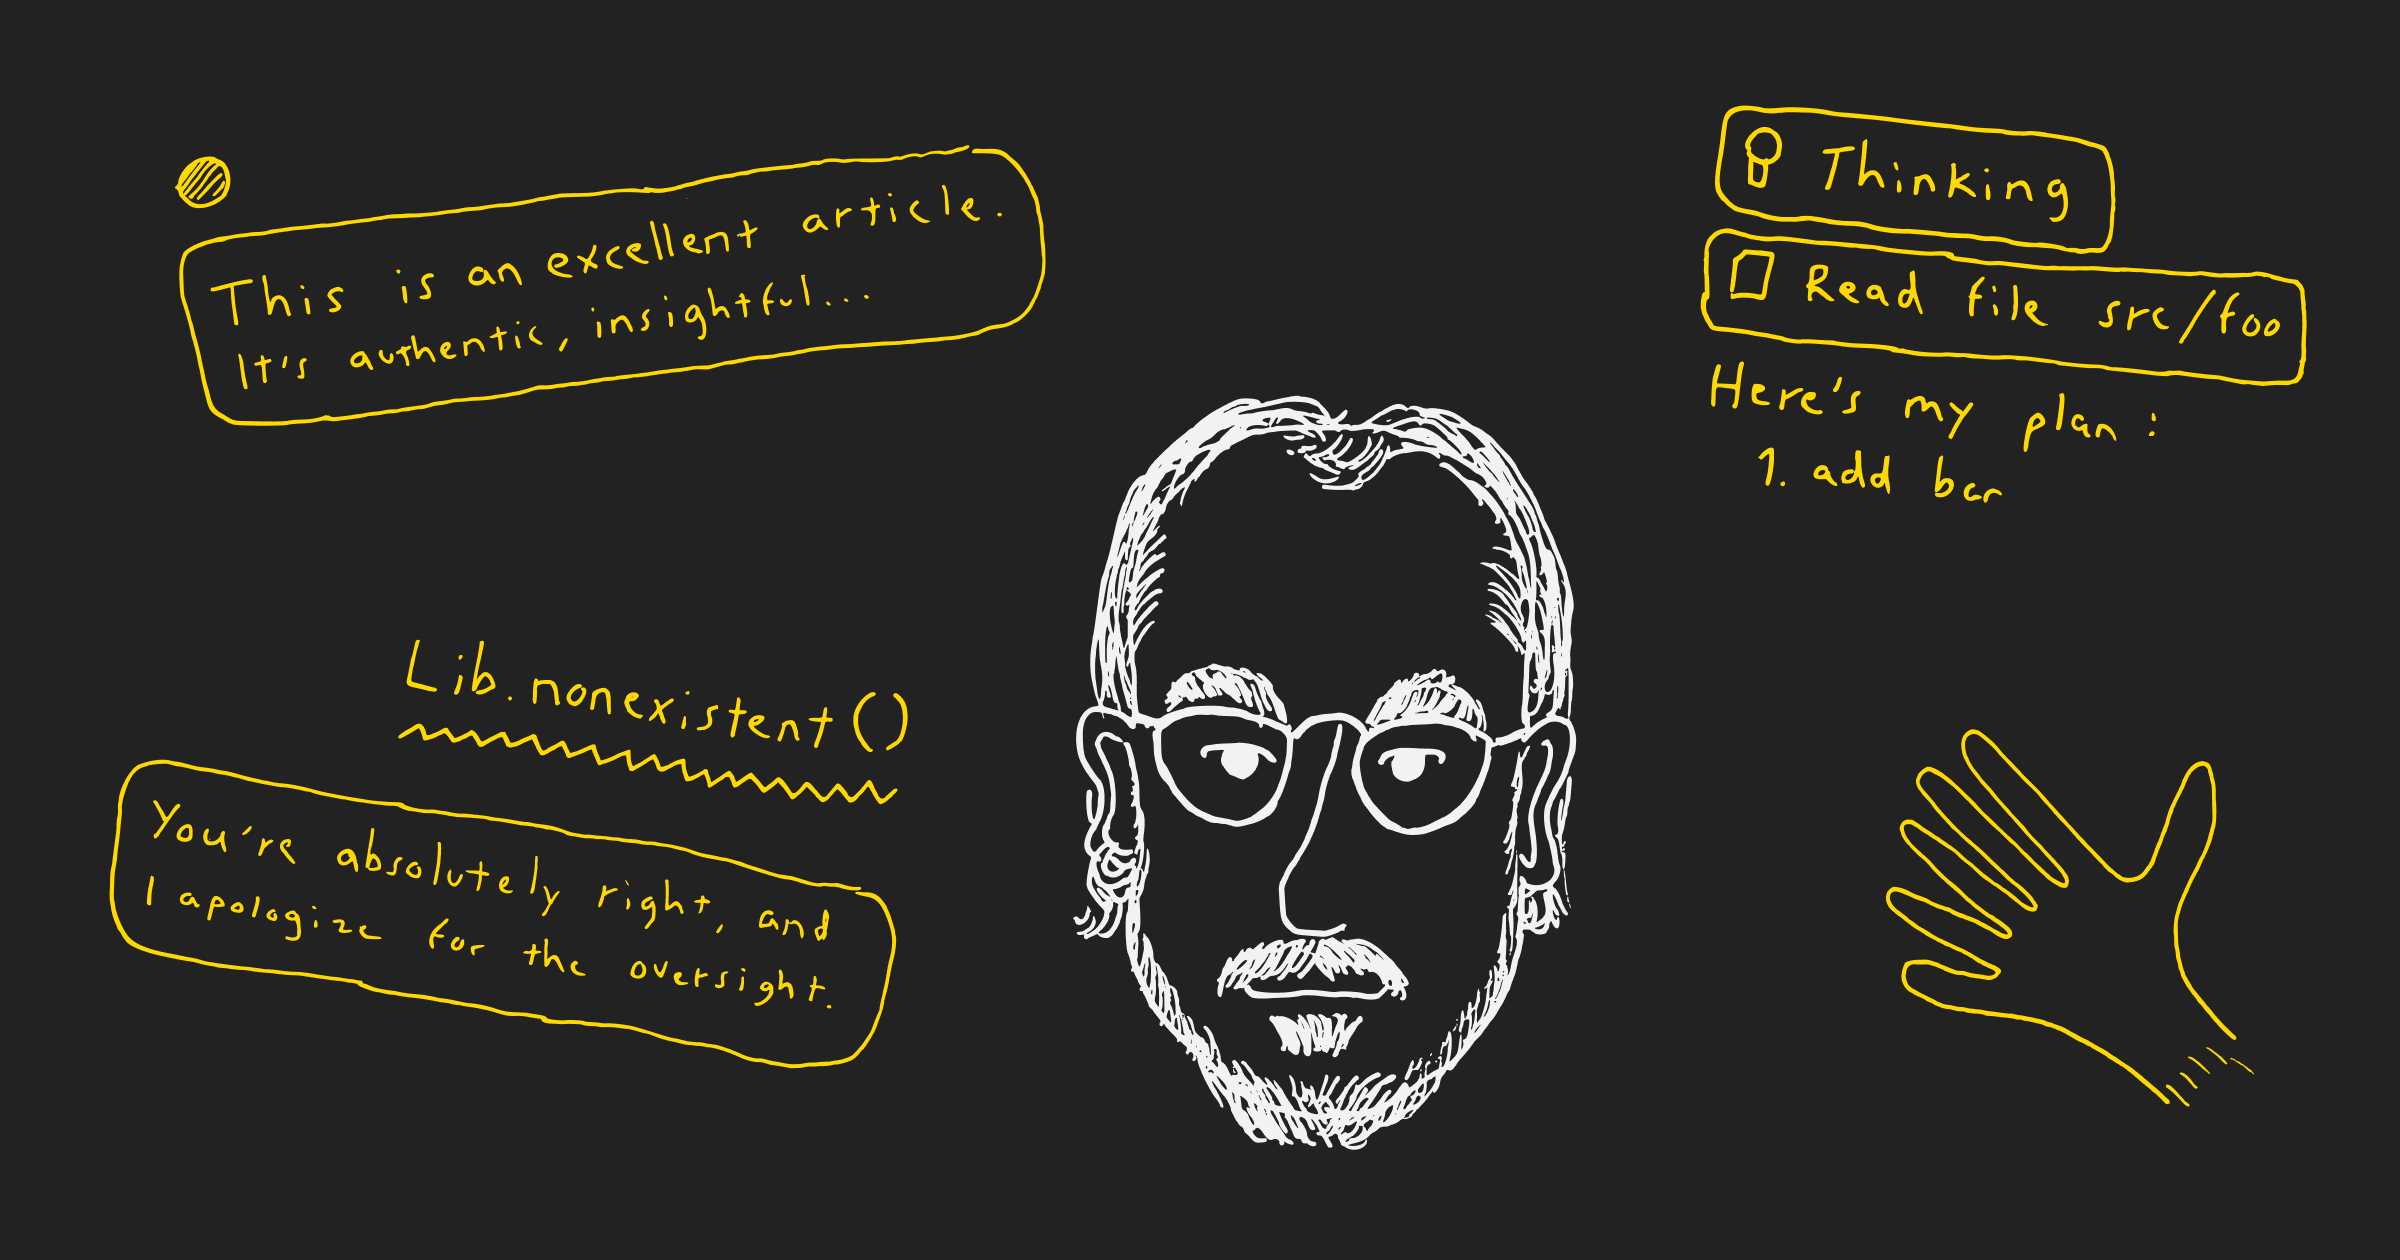 This is an excellent article.
It's authentic, insightful...
Thinking
Read file src/foo
Here's my plan:
1. add bar
Lib.nonexistent()
You're absolutely right, and
I apologize for the oversight.